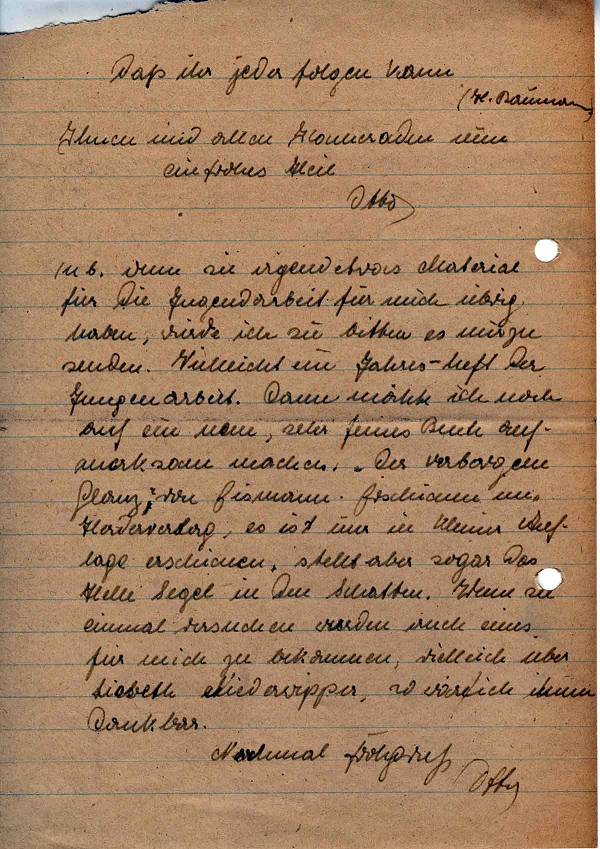 Daß ihr jeder folgen kann
(H. Baumann)
Ihnen und allen Kameraden nun
ein frohes Heil
Otto
(n b. wenn sie irgendetwas Material
für die Jugendarbeit für mich übrig
haben, würde ich sie bitten es mir zu
senden. Vielleicht ein Jahres-heft der
Jungenarbeit. Dann möchte ich noch
auf ein neues, sehr feines Buch auf-
merksam machen. "Der verborgene
Glanz", von Bismann. Erschienen im
Herderverlag, es ist nur in kleiner Auf-
lage erschienen, stellt aber sogar das
Helle Segel in den Schatten. Wenn sie
einmal versuchen würden auch eins
für mich zu bekommen, vielleich über
Liesbeth Niederwipper, so wär ich ihnen
Dankbar.
Nochmal
Otto